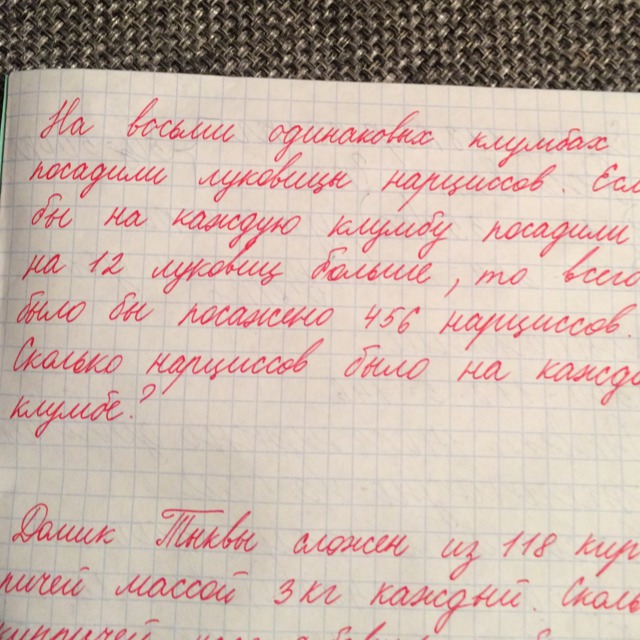 На восьми одинаковых клумбах
посадили луковицы нарциссов. Есл
бы на каждую клумбу посадили
на 12 луковиц больше, то всего
было бы посажено 456 нарциссов.
Сколько нарциссов было на каждо
клумбе?
Домик Тыквы сложен из 118 кир
пичей массой 3 кг каждый. Сколь